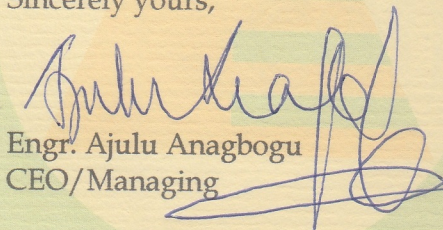 Sincerely yours,
Engr. Ajulu Anagbogu
CEO/Managing